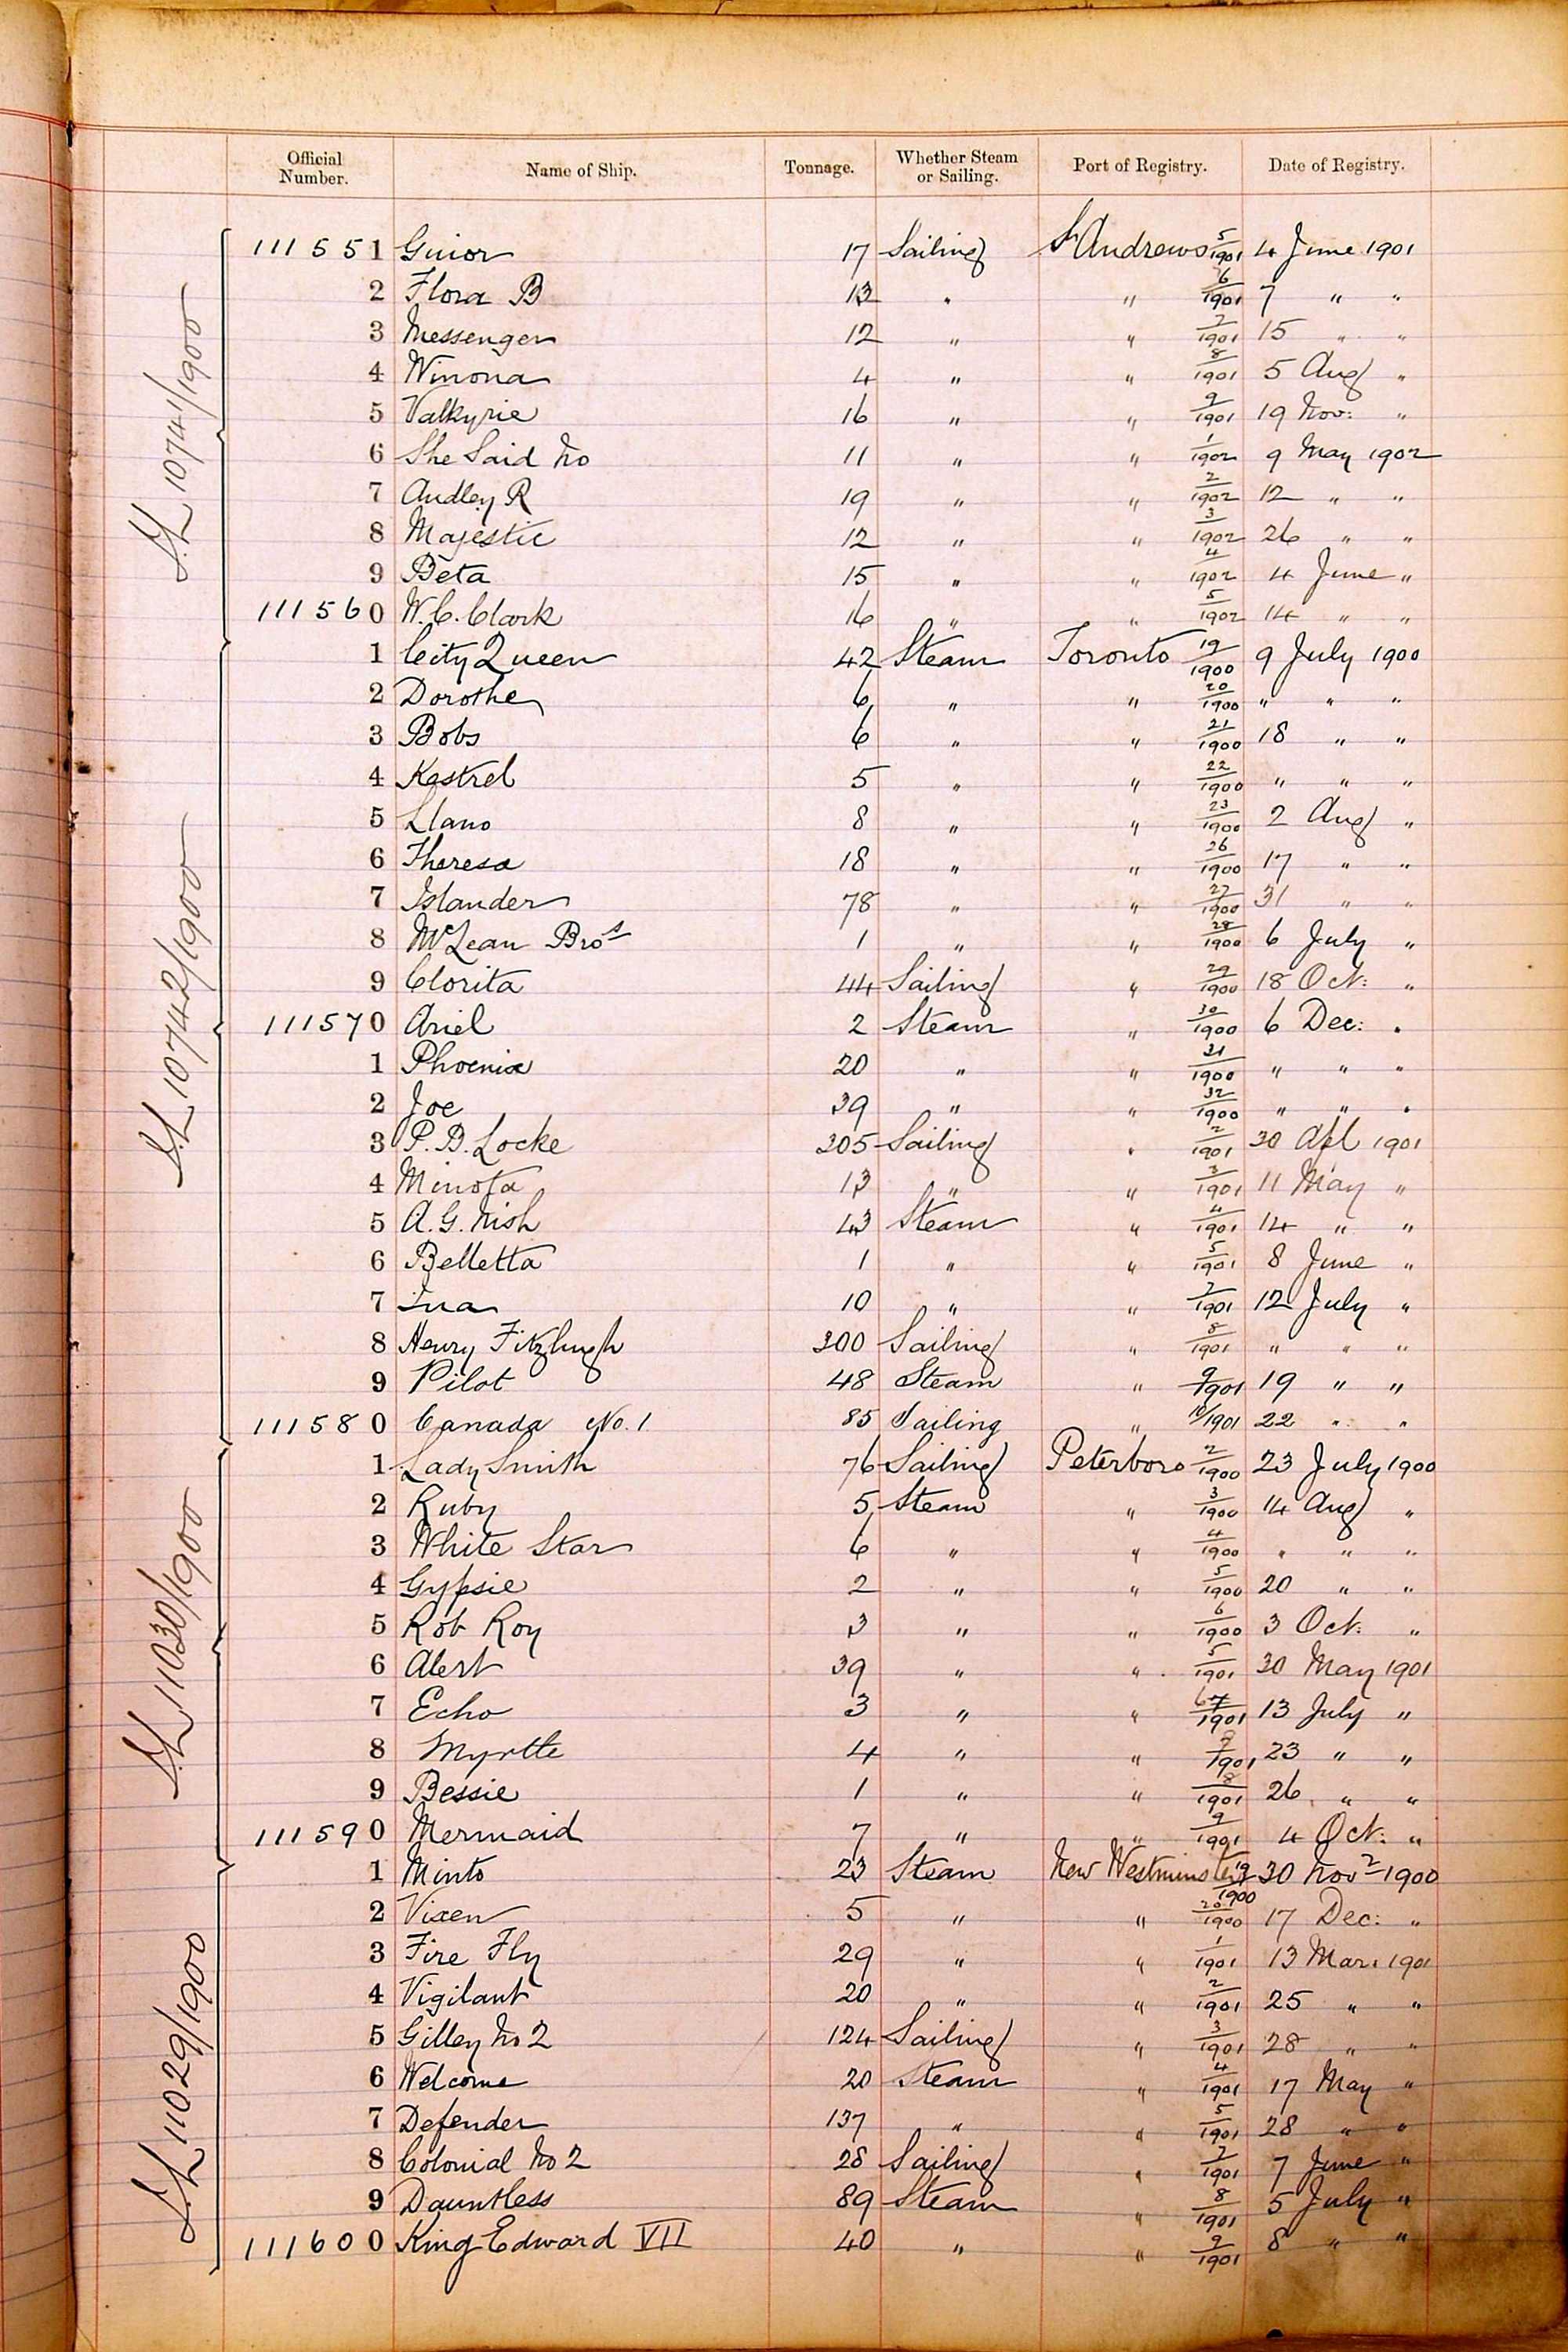 Official Number. Name of Ship. Tonnage. Whether Steam or Sailing. Port of Registry. Date of Registry.
S.L 10741/1900
111551 Guior 17 Sailing St Andrews 5/1901 4 June 1901
2 Flora B 13 " " 6/1901 7 " "
3 Messenger 12 " " 7/1901 15 " "
4 Winona 4 " " 8/1901 5 Aug "
5 Valkyrie 16 " " 9/1901 19 Nov: "
6 She Said No 11 " " 1/1902 9 May 1902
7 Audley R 19 " " 2/1902 12 " "
8 Majestic 12 " " 3/1902 26 " "
9 Beta 15 " " 4/1902 4 June "
111560 W. C. Clark 16 " " 5/1902 14 " "
S.L 10742/1900
1 City Queen 42 Steam Toronto 19/1900 9 July 1900
2 Dorothe 6 " " 20/1900 " " "
3 Bobs 6 " " 21/1900 18 " "
4 Kestrel 5 " " 22/1900 " " "
5 Llano 8 " " 23/1900 2 Aug "
6 Theresa 18 " " 26/1900 17 " "
7 Islander 78 " " 27/1900 31 " "
8 McLean Bros 1 " " 28/1900 6 July "
9 Clorita 44 Sailing " 29/1900 18 Oct: "
111570 Ariel 2 Steam " 30/1900 6 Dec: "
1 Phoenix 20 " " 31/1900 " " "
2 Joe 39 " " 32/1900 " " "
3 P. B. Locke 305 Sailing " 2/1901 30 Apl 1901
4 Minota 13 " " 3/1901 11 May "
5 A. G. Nish 43 Steam " 4/1901 14 " "
6 Belletta 1 " " 5/1901 8 June "
7 Ina 10 " " 7/1901 12 July "
8 Henry Fitzhugh 300 Sailing " 8/1901 " " "
9 Pilot 48 Steam " 9/1901 19 " "
111580 Canada No. 1 85 Sailing " 10/1901 22 " "
S.L 11030/1900
1 Lady Smith 76 Sailing Peterboro 2/1900 23 July 1900
2 Ruby 5 Steam " 3/1900 14 Aug "
3 White Star 6 " " 4/1900 " " "
4 Gypsie 2 " " 5/1900 20 " "
5 Rob Roy 3 " " 6/1900 3 Oct: "
6 Alert 39 " " 5/1901 30 May 1901
7 Echo 3 " " 6/1901 13 July "
8 Myrtle 4 " " 7/1901 23 " "
9 Bessie 1 " " 8/1901 26 " "
111590 Mermaid 7 " " 9/1901 4 Oct: "
S.L 11029/1900
1 Minto 23 Steam New Westminster 19/1900 30 Nov 1900
2 Vixen 5 " " 20/1900 17 Dec: "
3 Fire Fly 29 " " 1/1901 13 Mar. 1901
4 Vigilant 20 " " 2/1901 25 " "
5 Gilley No 2 124 Sailing " 3/1901 28 " "
6 Welcome 20 Steam " 4/1901 17 May "
7 Defender 137 " " 5/1901 28 " "
8 Colonial No 2 28 Sailing " 7/1901 7 June "
9 Dauntless 89 Steam " 8/1901 5 July "
111600 King Edward VII 40 " " 9/1901 8 " "